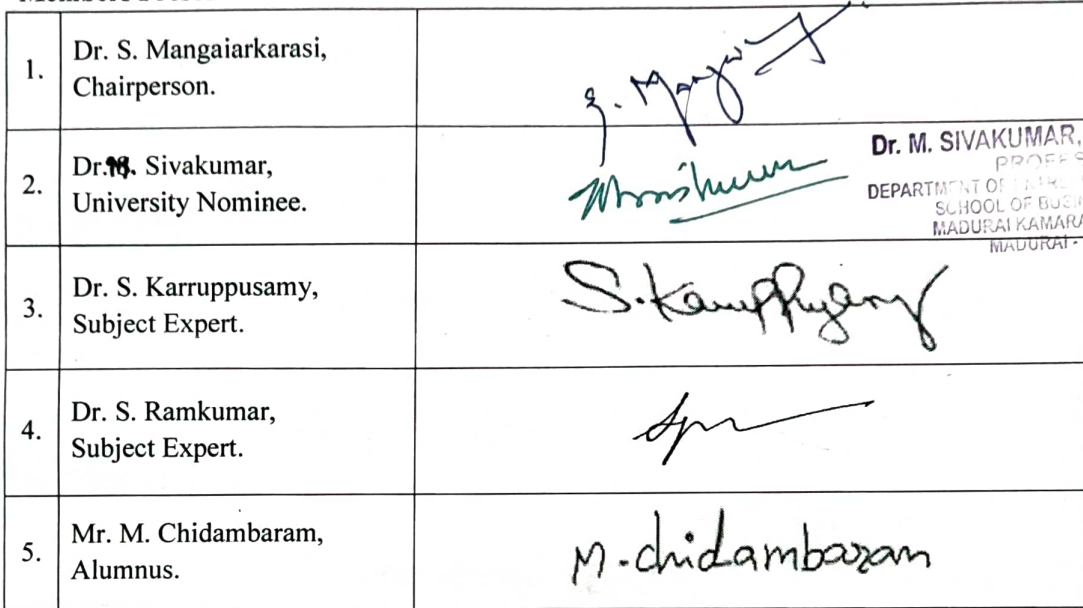 1.
Dr. S. Mangaiarkarasi,
Chairperson.
2.
Dr. M. Sivakumar,
University Nominee.
Dr. M. SIVAKUMAR,
PROFES
DEPARTMENT OF
SCHOOL OF BUSIN
MADURAI KAMARA
MADURAI -
3.
Dr. S. Karruppusamy,
Subject Expert.
S. Karuppusamy
4.
Dr. S. Ramkumar,
Subject Expert.
5.
Mr. M. Chidambaram,
Alumnus.
M. chidambaram